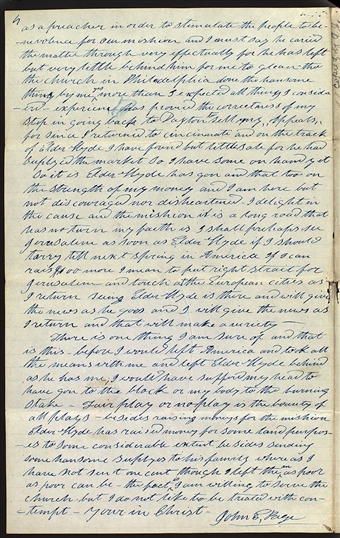 4
as a preacher in order to stimulate the people to be
nevolence for our mishion and I must say he caried
the matter through very effectually for he has left
but very little behind him for me to glean after
the church in Philadelphia done the hansome
thing by me more than I expected all things consid
ered experience has proved the correctness of my
step in going back to Dayton selling, &
for since I returned to cincinnati and on the track
of Elder Hyde I have found but little sale for he had
suplyed the market so I have some on hand yet
So it is Elder Hyde has gon and that too on
the strength of my money and I am here but
not discouraged nor disheartened I delight in
the cause and the mishion it is a long road that
has no turn my faith is I shall perhaps see
Jerusalem as soon as Elder Hyde if I should
tarry till next spring in America if I can
raise more I mean to put right straet for
Jerusalem and touch at the European cities as
I return seeing Elder Hyde is there and will give
the news as he goes and I will give the news as
I return and that will make a variety
There is one thing I am sure of and that
is this before I would left America and took all
the means with me and left Elder Hyde behind
as he has me, I would have suported my head to
have gon to the block or my body to the burning
stake Fair play or no play is the beauty of
all plays besides raising moneys for the mishion
Elder Hyde has raised money for some land purpos
es to some considerable extent besides sending
some hansome suplyes to his family whereas I
have not sent one cent though I left them as poor
as poor can be - the fact is I am willing to serve the
church but I do not like to be treated with con-
tempt - Your in Christ -
John E. Page